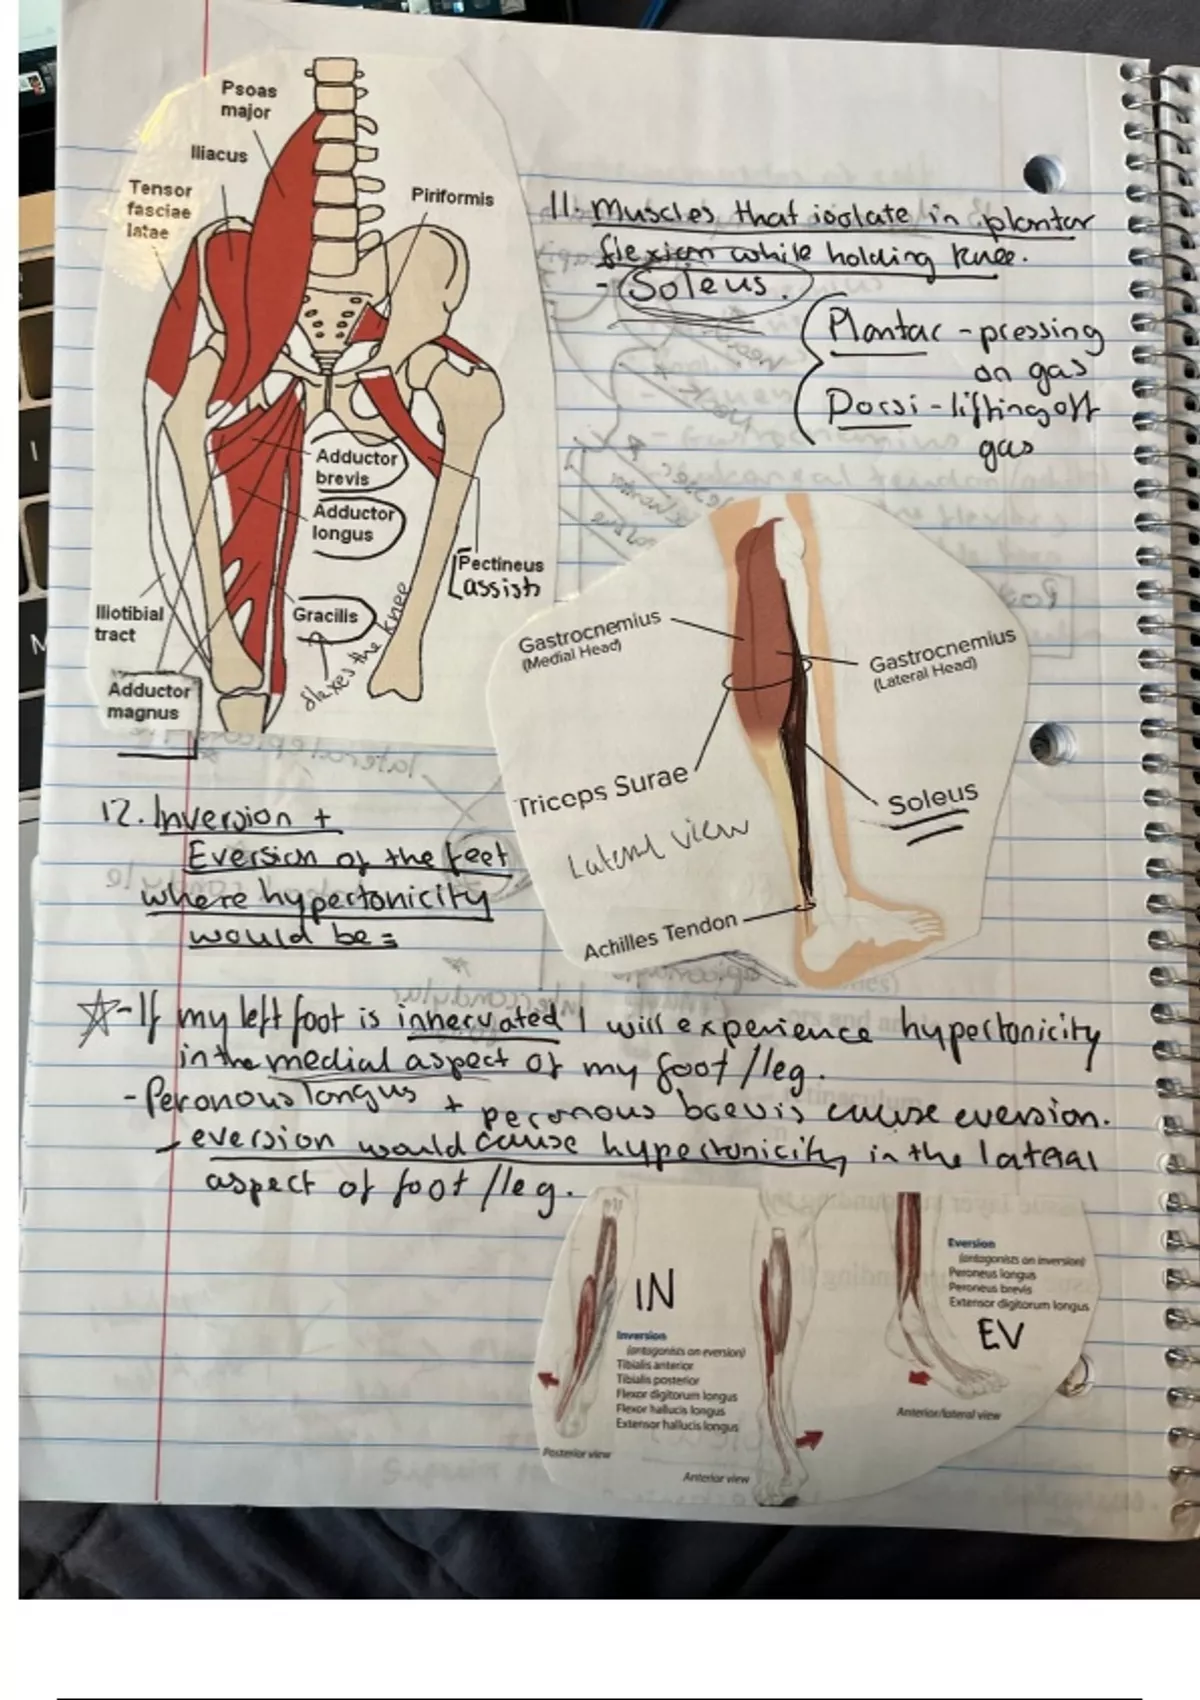 Psoas
major
Iliacus
Tensor
fasciae
latae
Piriformis
Adductor
brevis
Adductor
longus
Pectineus
assists
Iliotibial
tract
Gracilis
flaxes the knee
Adductor
magnus
11. Muscles that isolate in plantar
flexion while holding knee.
- Soleus.
Plantar - pressing
on gas
Dorsi - lifting off
gas
Gastrocnemius
(Medial Head)
Gastrocnemius
(Lateral Head)
Triceps Surae
Soleus
Lateral view
Achilles Tendon
12. Inversion +
Eversion of the feet
where hypertonicity
would be =
- If my left foot is innervated I will experience hypertonicity
in the medial aspect of my foot / leg.
- Peronous longus + peronous brevis cause eversion.
eversion would cause hypertonicity in the lateral
aspect of foot / leg.
IN
Inversion
(antagonists on eversion)
Tibialis anterior
Tibialis posterior
Flexor digitorum longus
Flexor hallucis longus
Extensor hallucis longus
Posterior view
Anterior view
Eversion
(antagonists on inversion)
Peroneus longus
Peroneus brevis
Extensor digitorum longus
EV
Anterior/lateral view